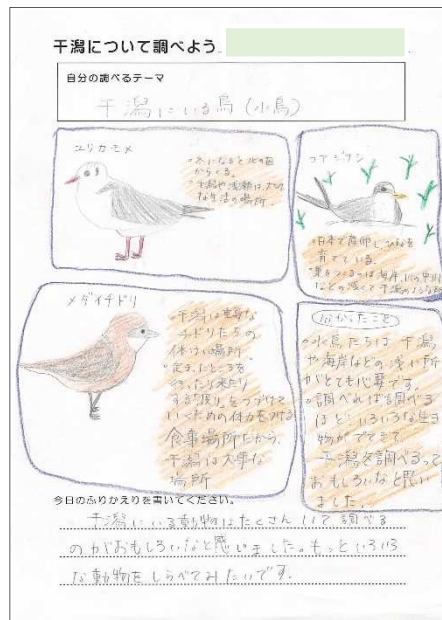 干潟について調べよう
自分の調べるテーマ
干潟にいる鳥(水鳥)
ユリカモメ
・冬になると北の国
からくる。
・干潟や浅瀬は大切
な生活の場所
コアジサシ
・日本で産卵し、ひなを
育てている。
・巣をつくるのは海岸、川の中州
などの
メダイチドリ
・干潟は重要な
チドリたちの
体けい場所
・定まったところを
行ったり来たり
する「渡り」をつづけて
いくための体力をつける
食事場所だから、
干潟は大事な
場所
分かったこと
・水鳥たちは干潟
や海岸などの浅い所
がとても必要です。
・調べれば調べる
ほど、いろいろな生き
物がでてきて、
干潟を調べるって
おもしろいなと思い
ました。
今日のふりかえりを書いてください。
干潟にいる動物はたくさんいて調べる
のがおもしろいなと感じました。もっといろいろ
な動物をしらべてみたいです。